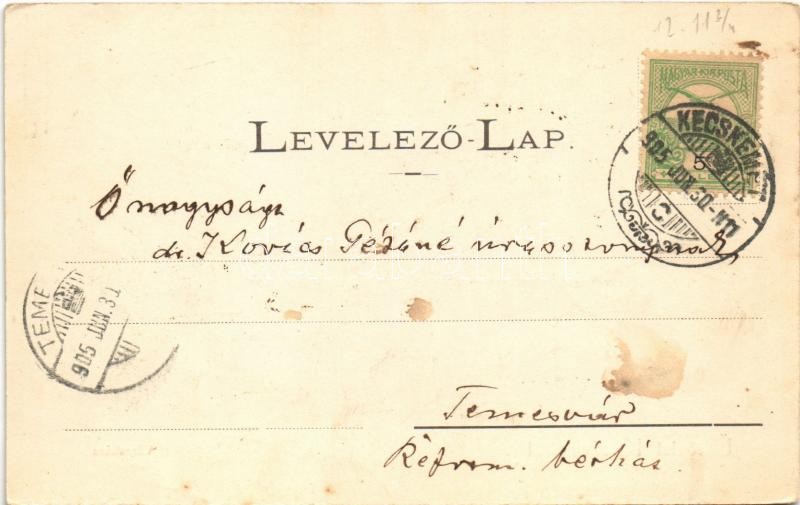 12. 11 3/4
MAGYAR KIR. POSTA
5
KECSKEMÉT
905 JUN. 30
LEVELEZŐ-LAP.
Ő nagysága
dr. Kovács Gézáné úrasszonynak
TEME
905 JUN. 31
Temesvár
Réform. bérház